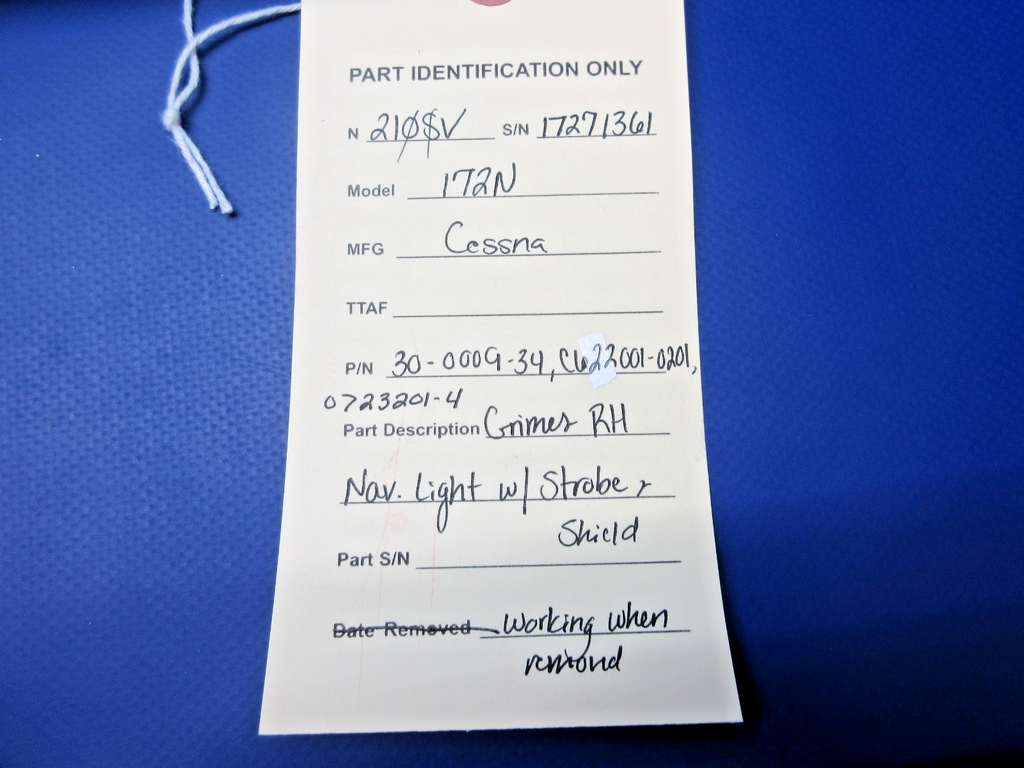 PART IDENTIFICATION ONLY
N 210$V S/N 17271361
Model 172N
MFG Cessna
TTAF
P/N 30-0009-34, C622001-0201,
0723201-4
Part Description Grimes RH
Nav. Light w/ Strobe &
Shield
Part S/N
Date Removed Working when
removed